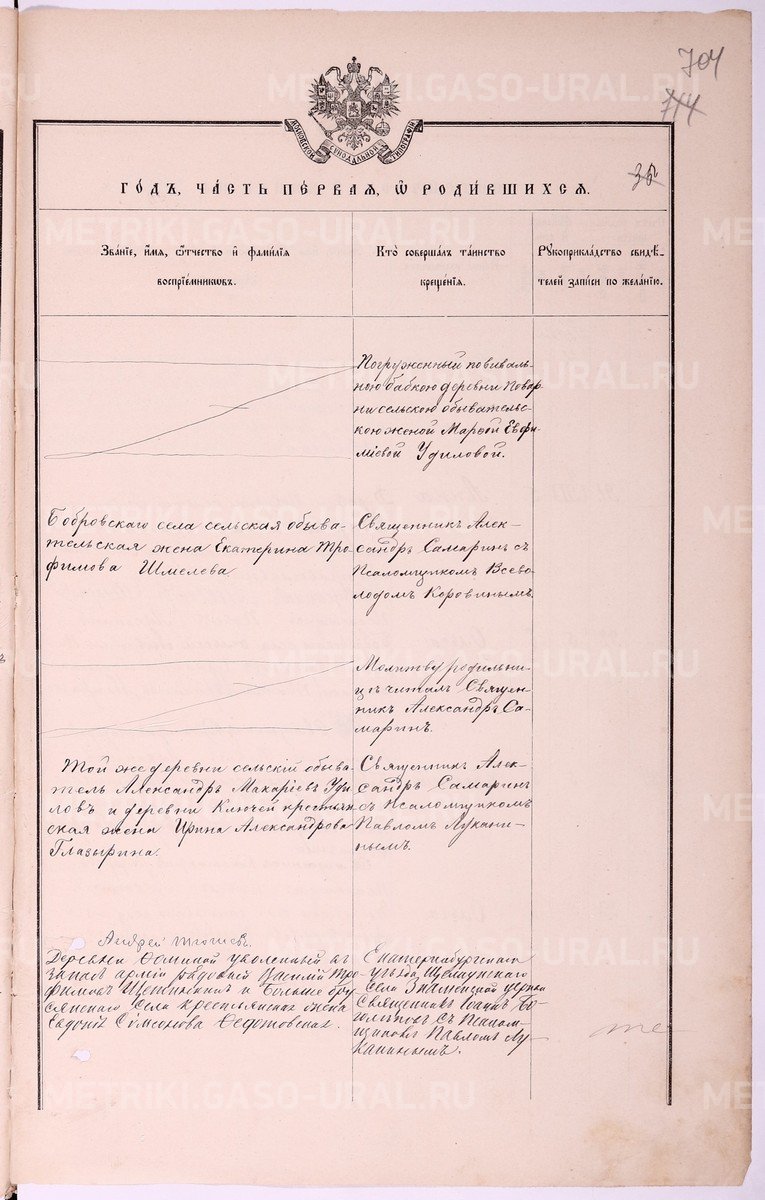 704
744
35
МОСКОВСКОЙ СѴНОДАЛЬНОЙ ТИПОГРАФІИ
ГО́ДЪ, ЧА́СТЬ ПЕ́РВАЯ, Ѽ РОДИ́ВШИХСЯ.
Зва́ніе, и҆́мя, ѻ҆́тчество и҆ фами́лія
воспріе́мникѡвъ.
Кто̀ соверша́лъ та́инство
креще́нія.
Рꙋкоприкла́дство свидѣ́-
телей за́писи по жела́нію.
Погруженный повиваль-
ною бабкою деревни Повар
ни сельскою обывательс-
кою женой Марѳой Евфи-
міевой Удиловой.
Бобровскаго села сельская обыва-
тельская жена Екатерина Тро
фимова Шмелева
Священникъ Алек-
сандръ Самаринъ съ
Псаломщикомъ Всево-
лодомъ Коровинымъ.
Молитву родильни-
цѣ читалъ Священ-
никъ Александръ Са-
маринъ.
Той же деревни сельскій обыва-
тель Александръ Макаріевъ Уди-
ловъ и деревни Ключей крестьян
ская жена Ирина Александрова
Глазырина.
Священникъ Алек-
сандръ Самаринъ
съ Псаломщикомъ
Павломъ Лукани-
нымъ.
Андрей
Деревни Ѳоминой уволенный въ
запасъ арміи рядовой Василій Тро-
фимовъ Щетинскихъ и Больше бру
сянскаго села крестьянская жена
Евдокія Самсонова Ѳедотовская.
Екатеринбургскаго
уѣзда, Щелкунскаго
села Знаменской церкви
Священникъ Іоаннъ Бо-
съ Псалом-
щикомъ Павломъ Лу-
канинымъ.
METRIKI.GASO-URAL.RU